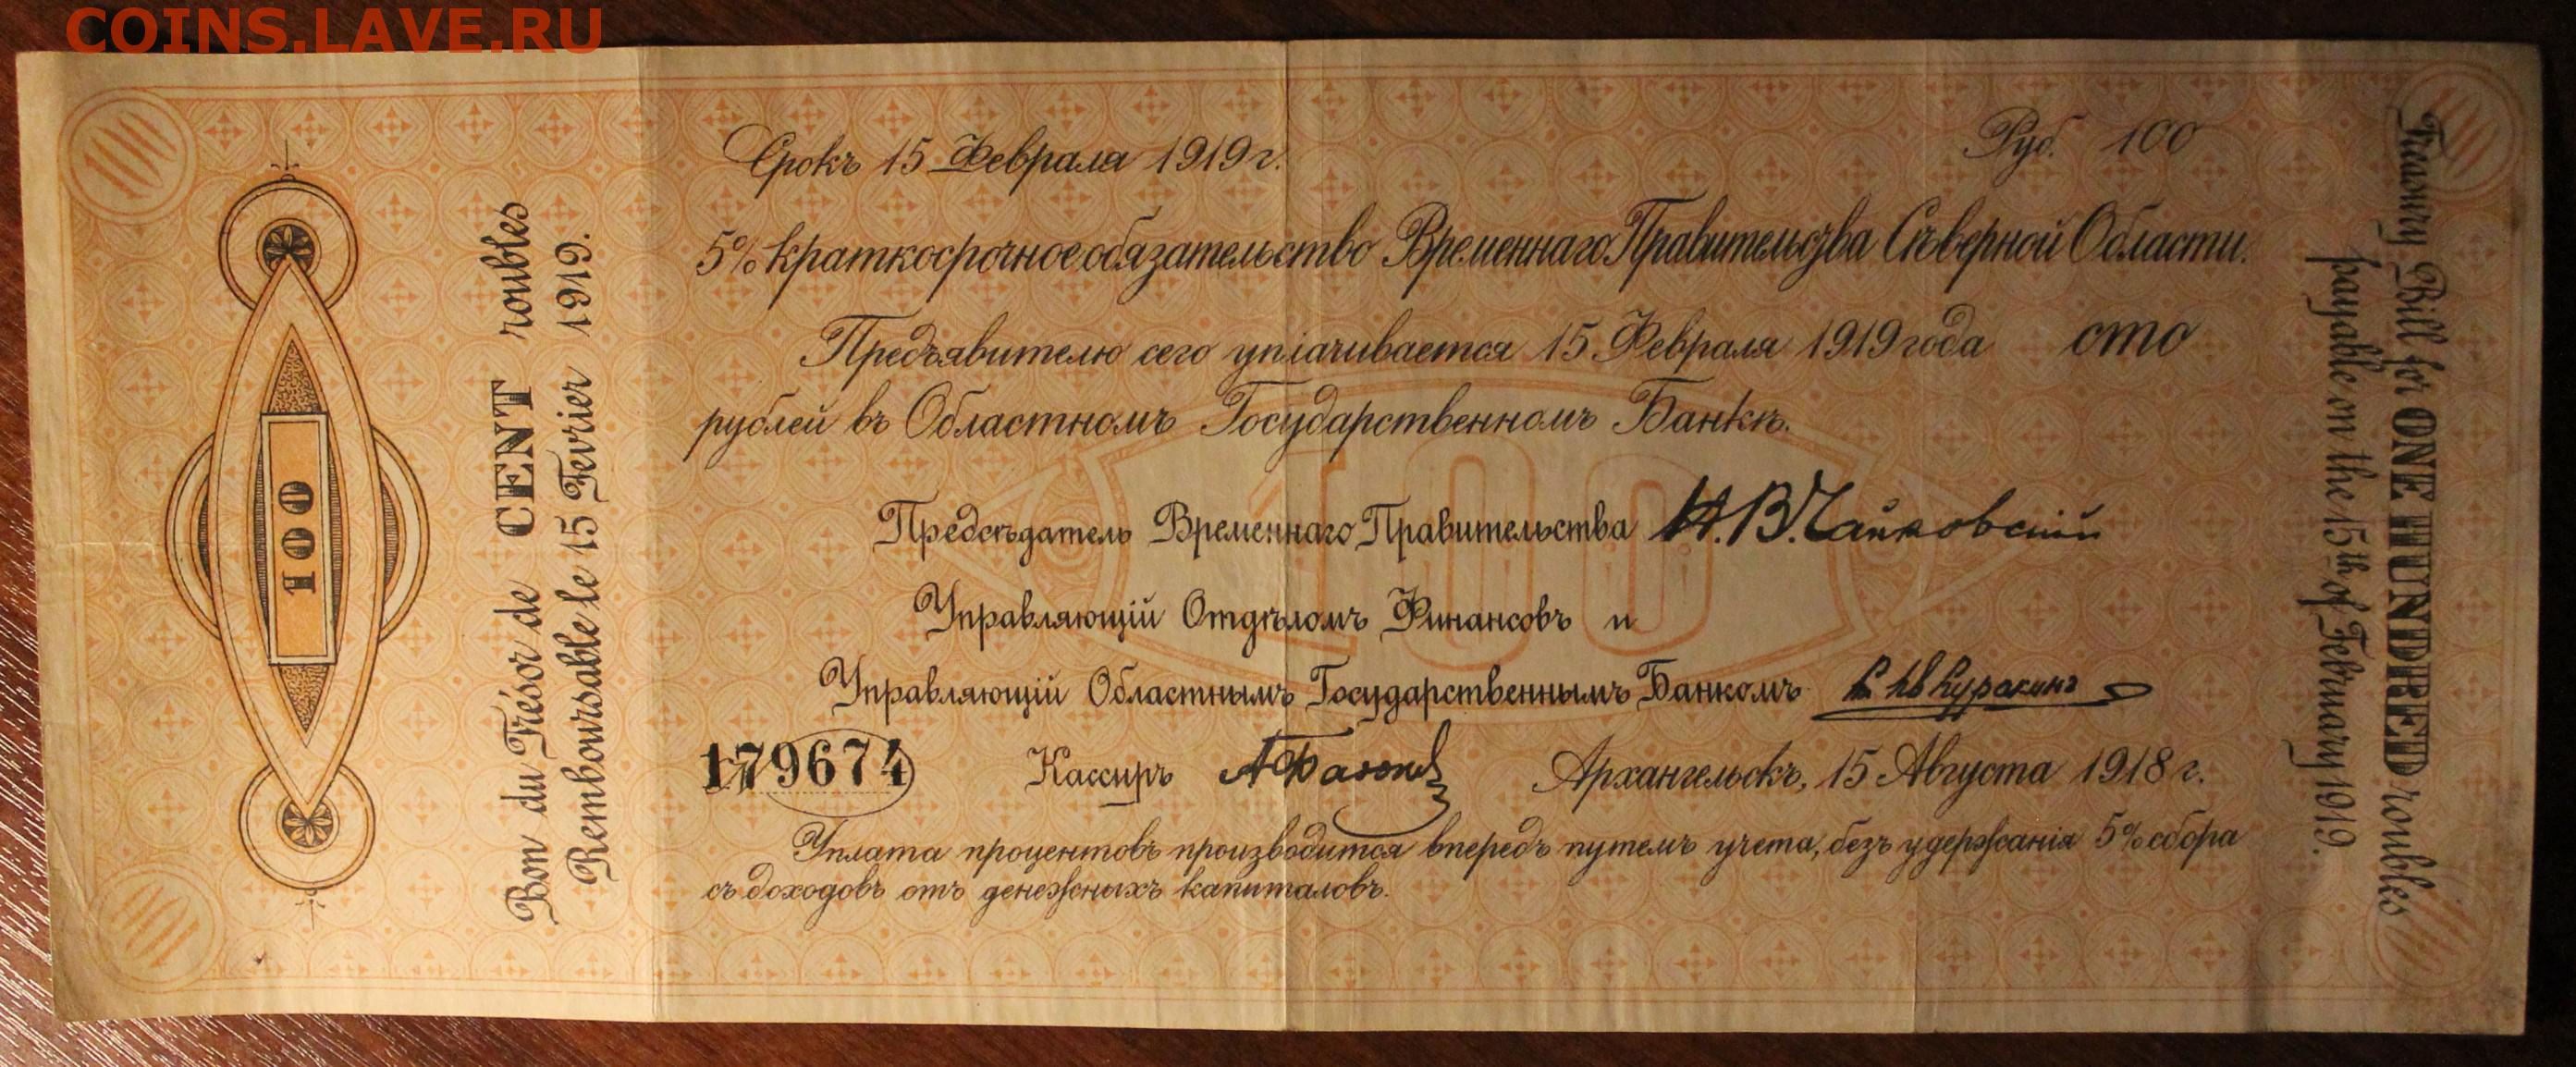 COINS.LAVE.RU
Срокъ 15 Февраля 1919 г.
Руб. 100
5% краткосрочное обязательство Временнаго Правительства Сѣверной Области.
Предъявителю сего уплачивается 15 Февраля 1919 года сто
рублей въ Областномъ Государственномъ Банкѣ.
100
Предсѣдатель Временнаго Правительства Н.В.Чайковскій
Управляющій Отдѣломъ Финансовъ и
Управляющій Областнымъ Государственнымъ Банкомъ Куракинъ
179674 Кассиръ Архангельскъ, 15 Августа 1918 г.
Уплата процентовъ производится впередъ путемъ учета, безъ удержанія 5% сбора
съ доходовъ отъ денежныхъ капиталовъ.
100
Bon du Trésor de CENT roubles
Remboursable le 15 Fevrier 1919.
Treasury Bill for ONE HUNDRED roubles
payable on the 15th of February 1919.